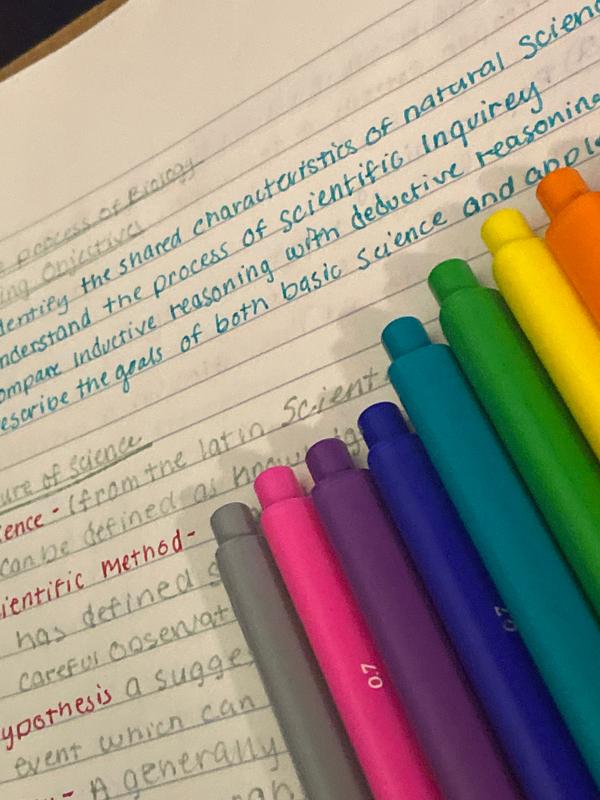 process of Biology
ing Objectives
dentify the shared characteristics of natural scien
nderstand the process of scientific Inquirey
ompare inductive reasoning with deductive reasoning
escribe the goals of both basic science and appl
ure of science
ience - (from the latin Scient
can be defined as know
ientific Method -
has defined s
careful observat
ypothesis a sugges
event which can
- A generally
0.7
0.7